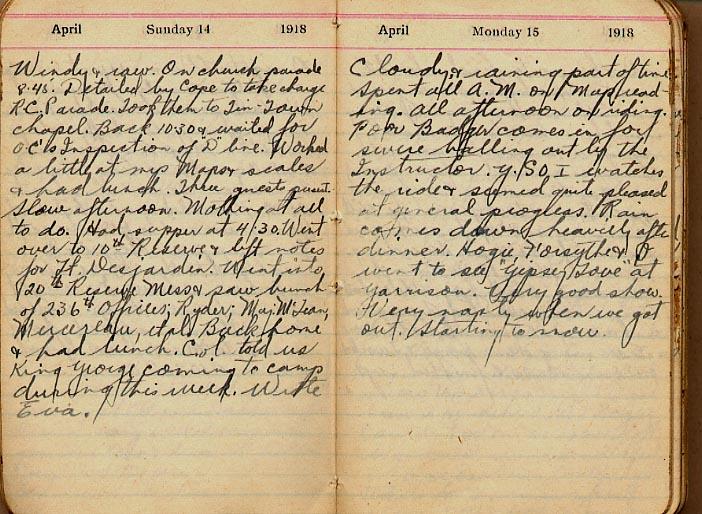 April Sunday 14 1918
Windy & raw. On church parade
8.45. Detailed by Cape to take charge
R.C. Parade. Took them to Tin-Town
chapel. Back 10.30 & waited for
O.C.'s Inspection of D line. Worked
a little at my Maps & scales
& had lunch. Three guests present.
Slow afternoon. Nothing at all
to do. Had supper at 4.30. Went
over to 10th Reserve & left notes
for Lt. Desjardin. Went into
20th Reserve Mess & saw bunch
of 236th Officers; Ryder; Maj. McLean,
Back home
& had lunch. Col. told us
King George coming to camp
during this week. Wrote
Eva.
April Monday 15 1918
Cloudy & raining part of time
spent all A.M. on Map read-
ing. All afternoon on riding.
Poor Badger comes in for
severe balling out by the
Instructor. G.S.O. I watches
the ride & seemed quite pleased
at general progress. Rain
comes down heavily after
dinner. Hogie, Forsythe & I
went to see "Gipsey Love" at
Garrison. Very good show.
Very nasty when we got
out. Starting to snow.